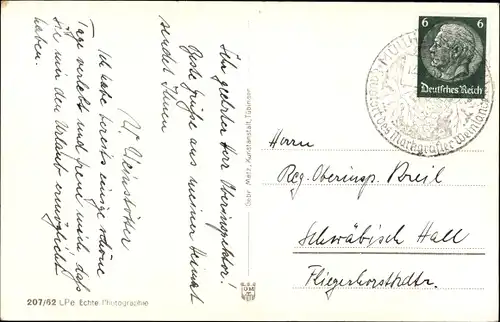 Sehr geehrter Herr Oberinspektor!
Gute Grüße aus meiner Heimat
sendet Ihnen
Ich habe bereits einige schöne
Tage verlebt und freue mich, daß
Sie mir den Urlaub ermöglicht
haben.
Gebr. Metz, Kunstanstalt, Tübingen
207/62 LPe Echte Photographie
6 6
Deutsches Reich
des Markgräfler Weinbaues
Herrn
Reg. Oberinsp. Breil
Schwäbisch Hall
Fliegerhorstkdtr.